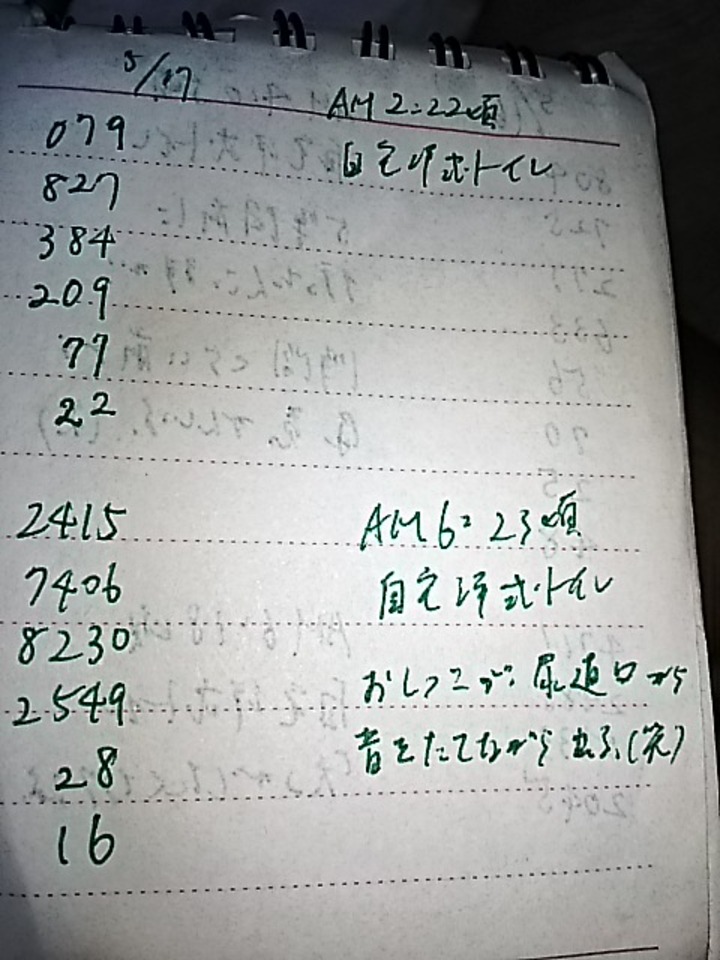 5/17
AM 2:22頃
079
自宅洋式トイレ
827
384
209
77
22
2415
AM 6:23頃
7406
自宅洋式トイレ
8230
2549
おしっこが、尿道口から
28
音をたてながら出る、(笑)
16